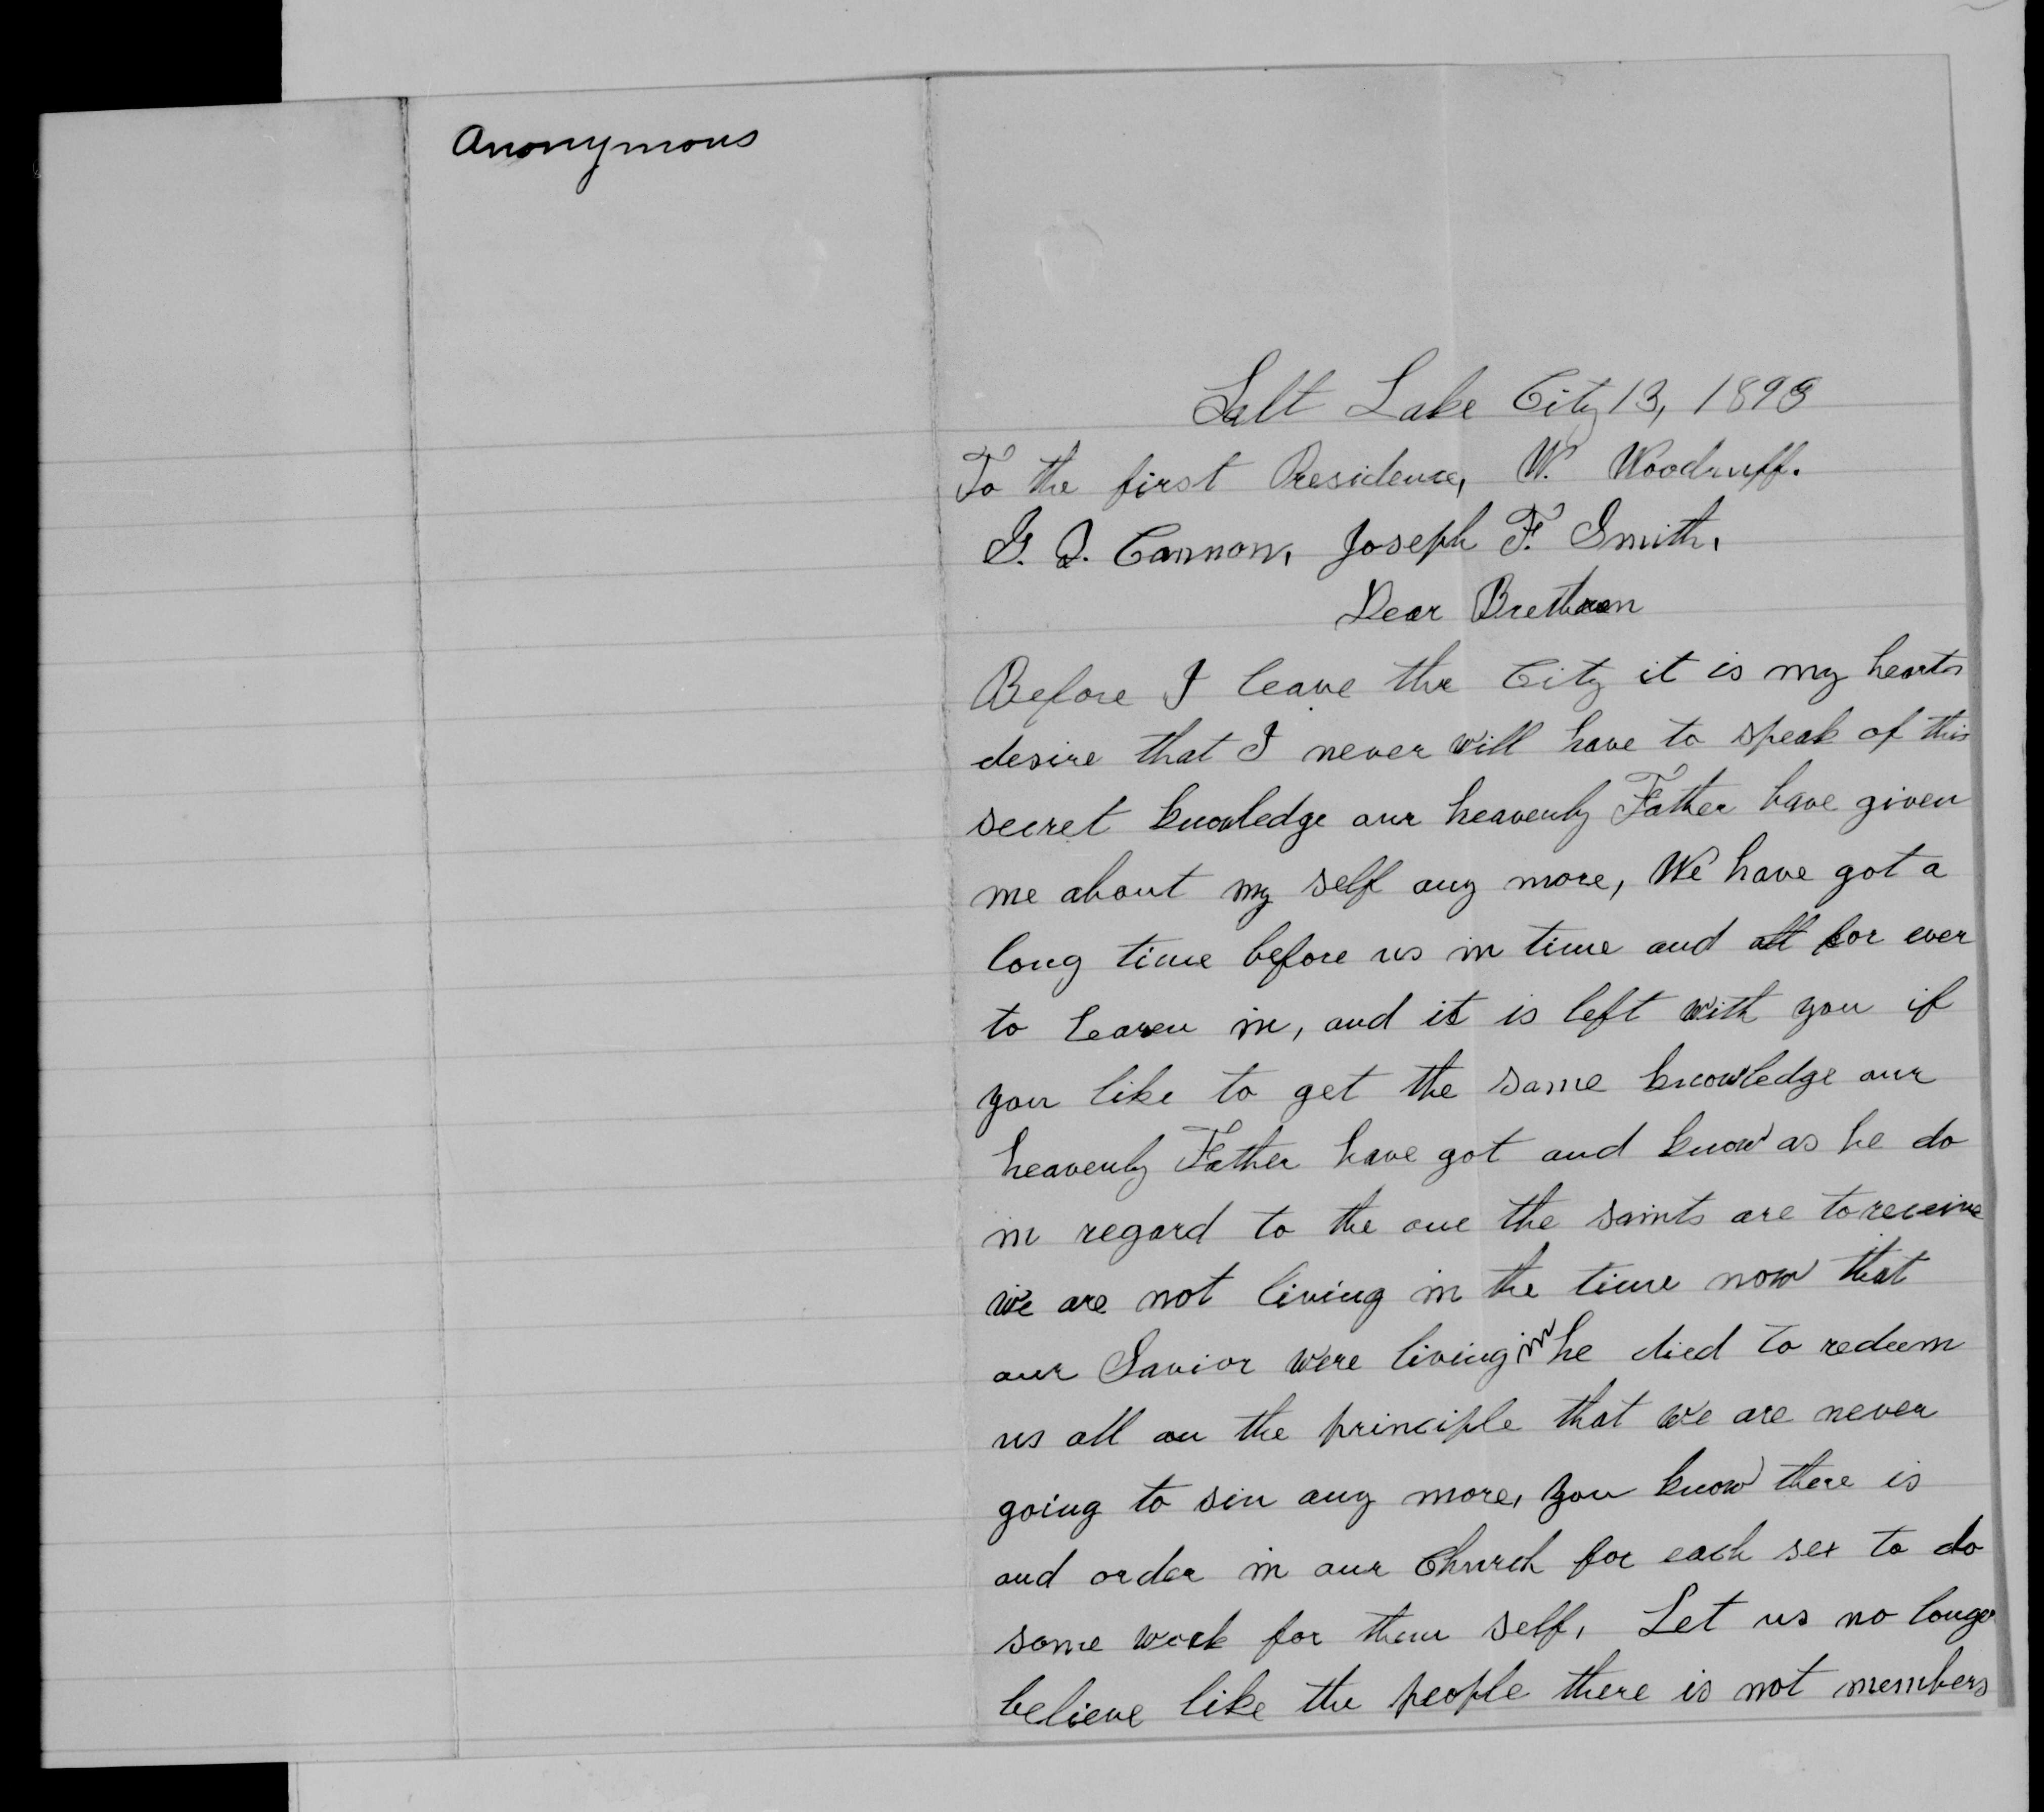 Anonymous
Salt Lake City 13, 1893
To the first Presidence, W. Woodruff.
G. Q. Cannon, Joseph F. Smith,
Dear Brethren
Before I leave the City it is my hearts
desire that I never will have to speak of this
secret knowledge our heavenly Father have given
me about my self any more, We have got a
long time before us in time and all for ever
to learen in, and it is left with you if
you like to get the same knowledge our
heavenly Father have got and know as he do
in regard to the one the saints are to receive
We are not living in the time now that
our Savior were living in he died to redeem
us all on the principle that we are never
going to sin any more, you know there is
and order in our Church for each sex to do
some work for them self, Let us no longer
believe like the people there is not members